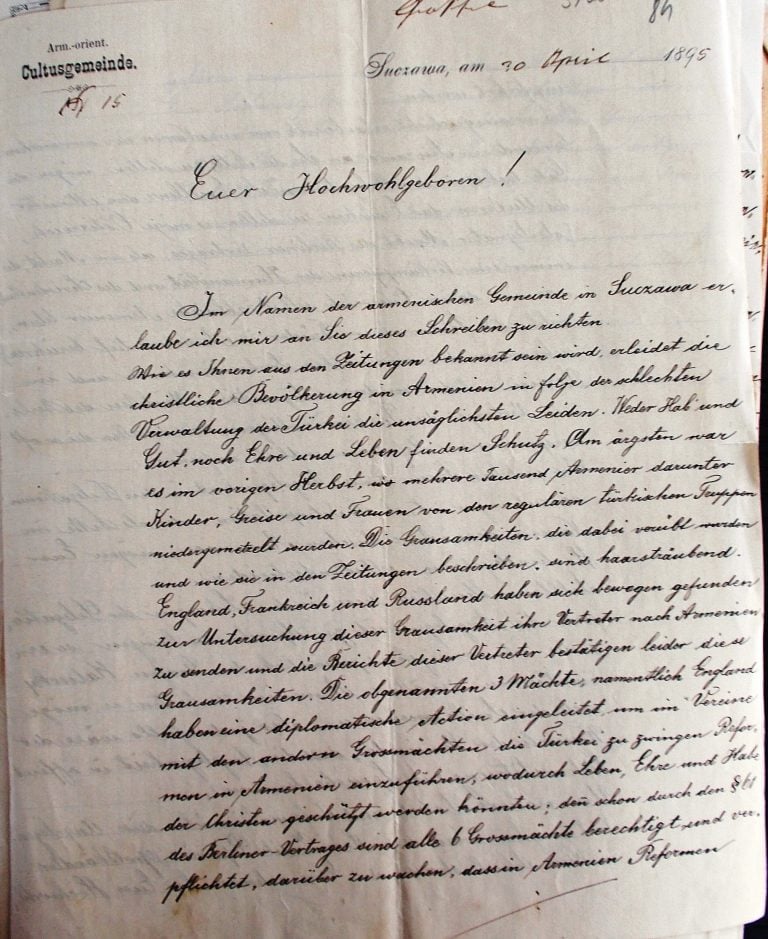 84
Arm.-orient.
Cultusgemeinde.
15
Suczawa, am 30 April 1895
Euer Hochwohlgeboren !
Im Namen der armenischen Gemeinde in Suczawa er-
laube ich mir an Sie dieses Schreiben zu richten
Wie es Ihnen aus den Zeitungen bekannt sein wird, erleidet die
christliche Bevölkerung in Armenien in folge der schlechten
Verwaltung der Türkei die unsäglichsten Leiden. Weder Hab und
Gut, noch Ehre und Leben finden Schutz. Am ärgsten war
es im vorigen Herbst, wo mehrere Tausend Armenier darunter
Kinder, Greise und Frauen von den regulären türkischen Truppen
niedergemetzelt wurden. Die Grausamkeiten, die dabei verübt wurden
und wie sie in den Zeitungen beschrieben, sind haarsträubend.
England, Frankreich und Russland haben sich bewegen gefunden
zur Untersuchung dieser Grausamkeit ihre Vertreter nach Armenien
zu senden und die Berichte dieser Vertreter bestätigen leider diese
Grausamkeiten. Die obgenannten 3 Mächte, namentlich England
haben eine diplomatische Action eingeleitet um im Vereine
mit den andern Grossmächten die Türkei zu zwingen Refor-
men in Armenien einzuführen, wodurch Leben, Ehre und Habe
der Christen geschützt werden könnten; deñ schon durch den § 61
des Berliner-Vertrages sind alle 6 Grossmächte berechtigt und ver-
pflichtet, darüber zu wachen, dass in Armenien Reformen